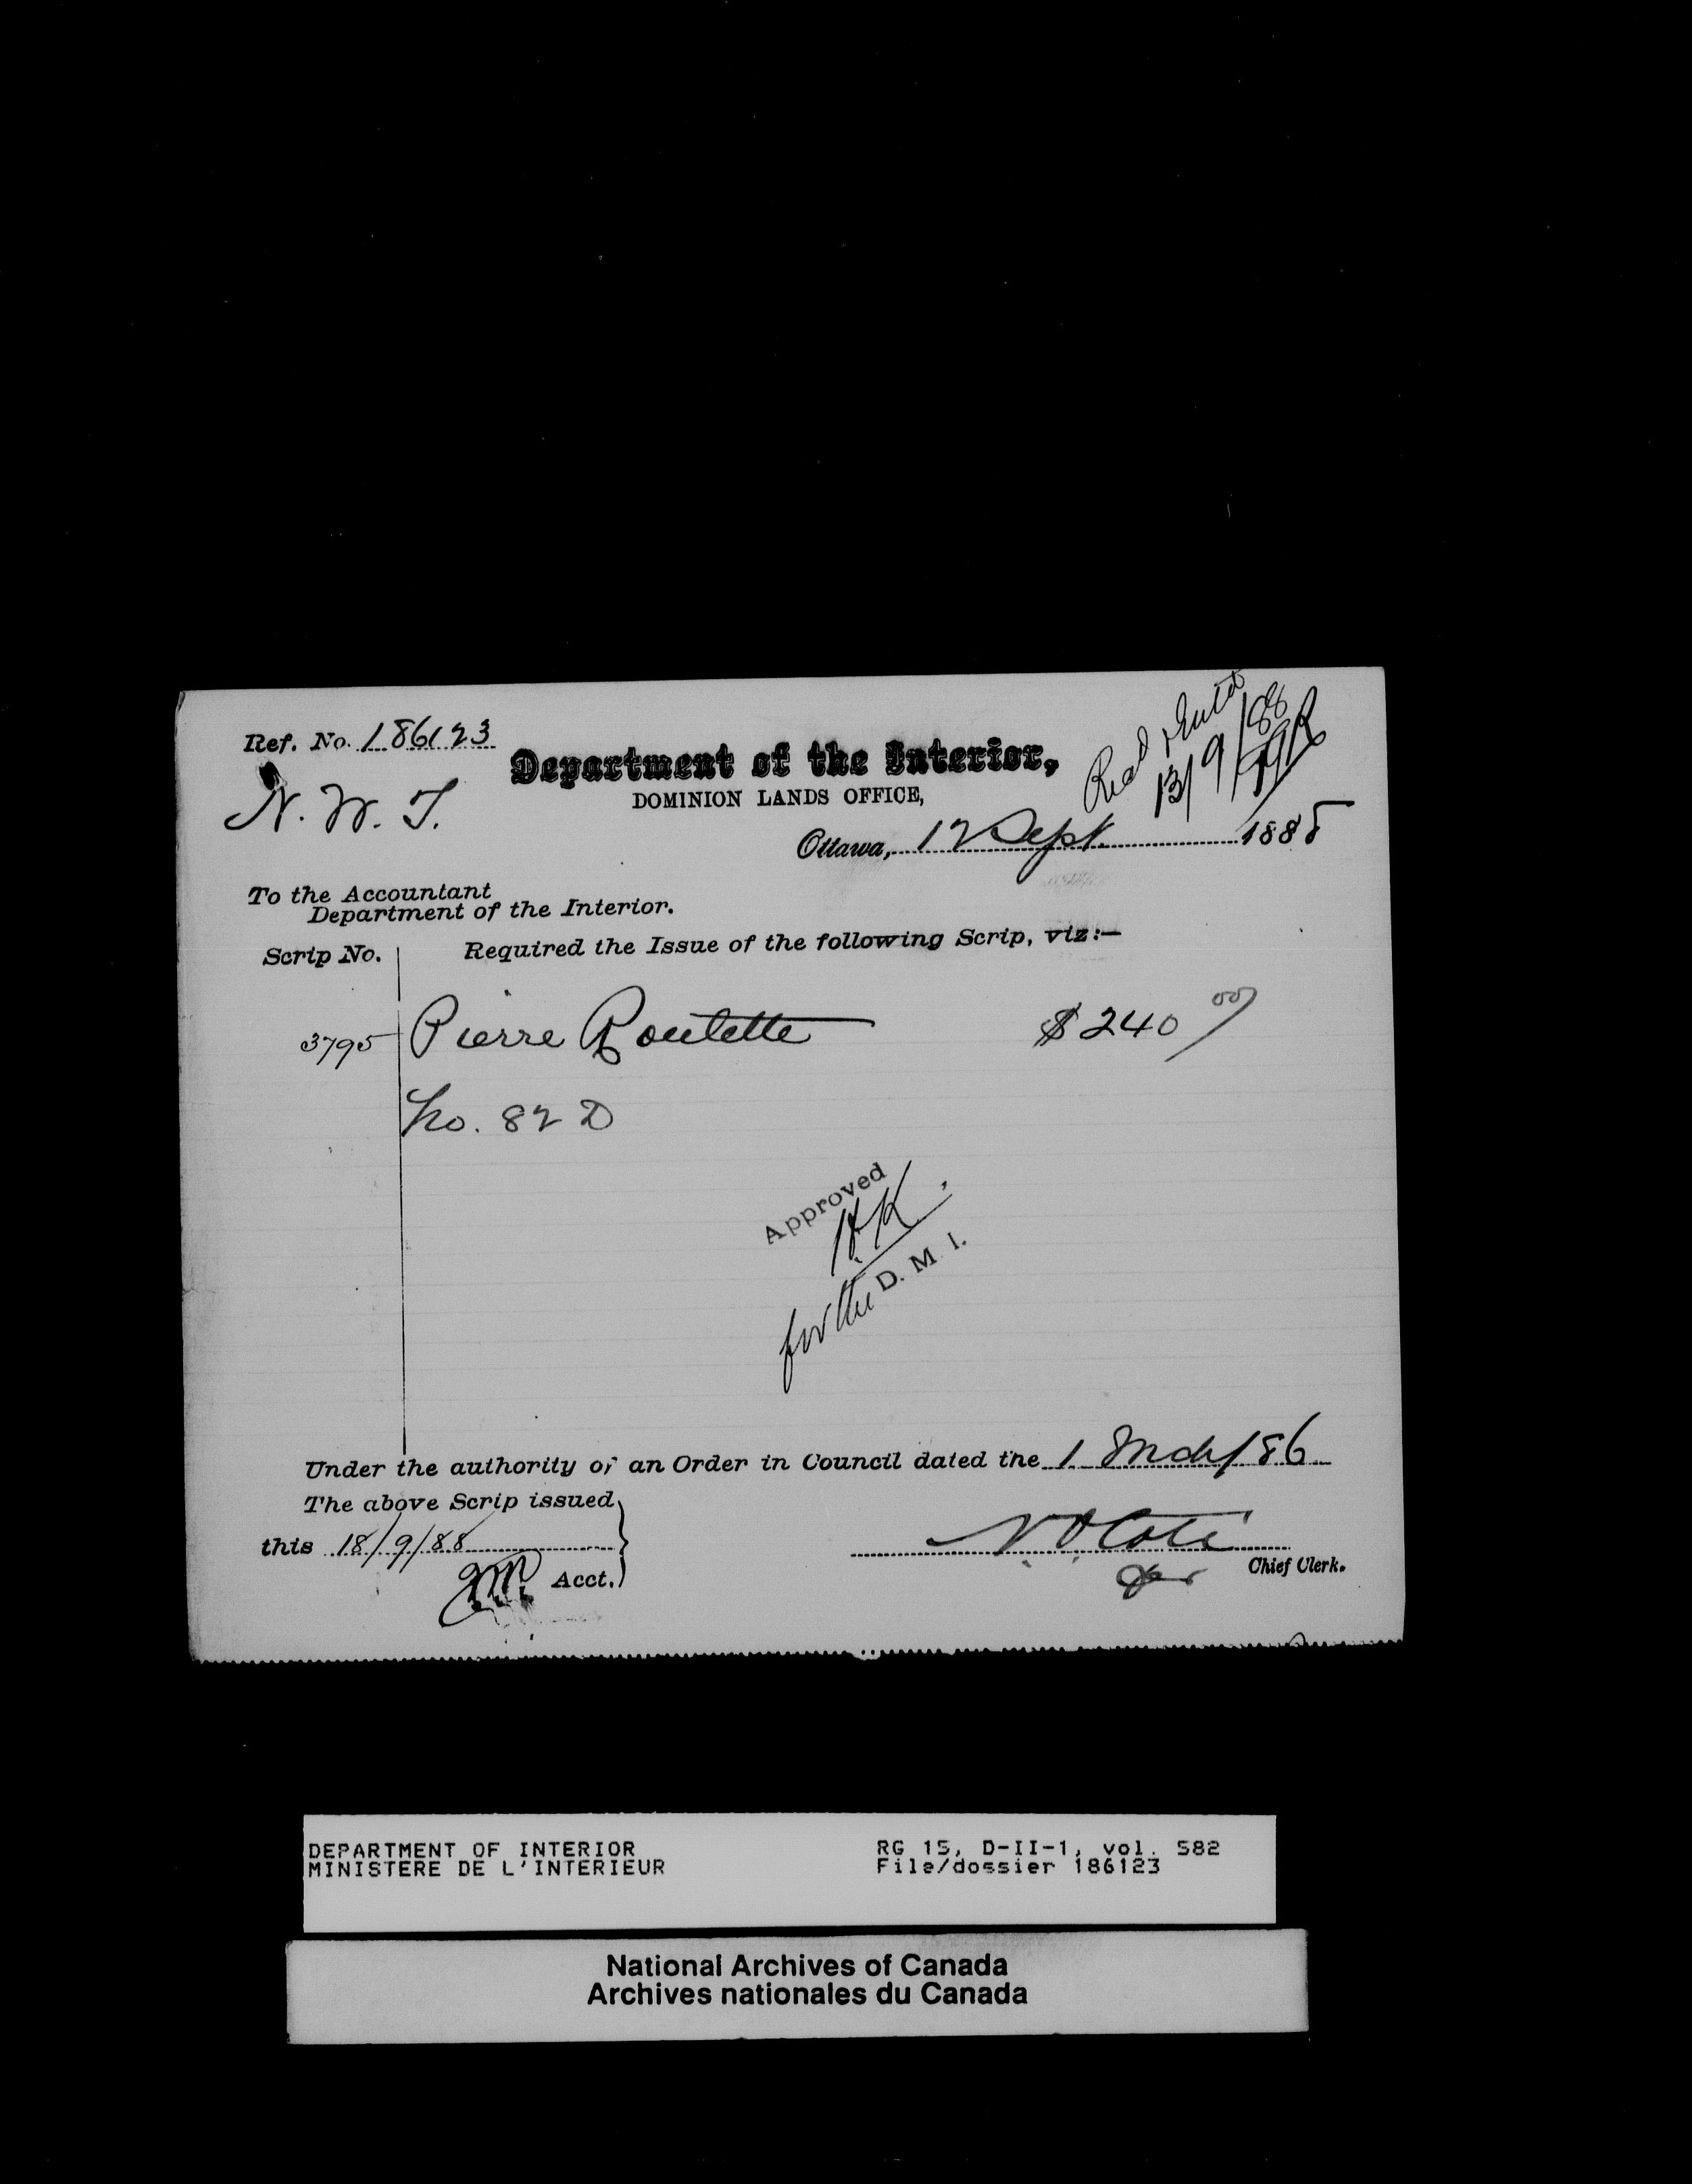 Ref. No. 186123
Recd & Entd
13/9/88
N. W. T.
Department of the Interior,
DOMINION LANDS OFFICE,
Ottawa, 12 Sept. 1888
To the Accountant
Department of the Interior.
Scrip No.
Required the Issue of the following Scrip, viz:—
3795 Pierre Roulette $240 00
No. 82 D
Approved
H.K.
for the D. M. I.
Under the authority of an Order in Council dated the 1 Mch/86
The above Scrip issued
this 18/9/88
Acct.
N. O. Coté
Chief Clerk.
DEPARTMENT OF INTERIOR
MINISTERE DE L'INTERIEUR
RG 15, D-II-1, vol. 582
File/dossier 186123
National Archives of Canada
Archives nationales du Canada